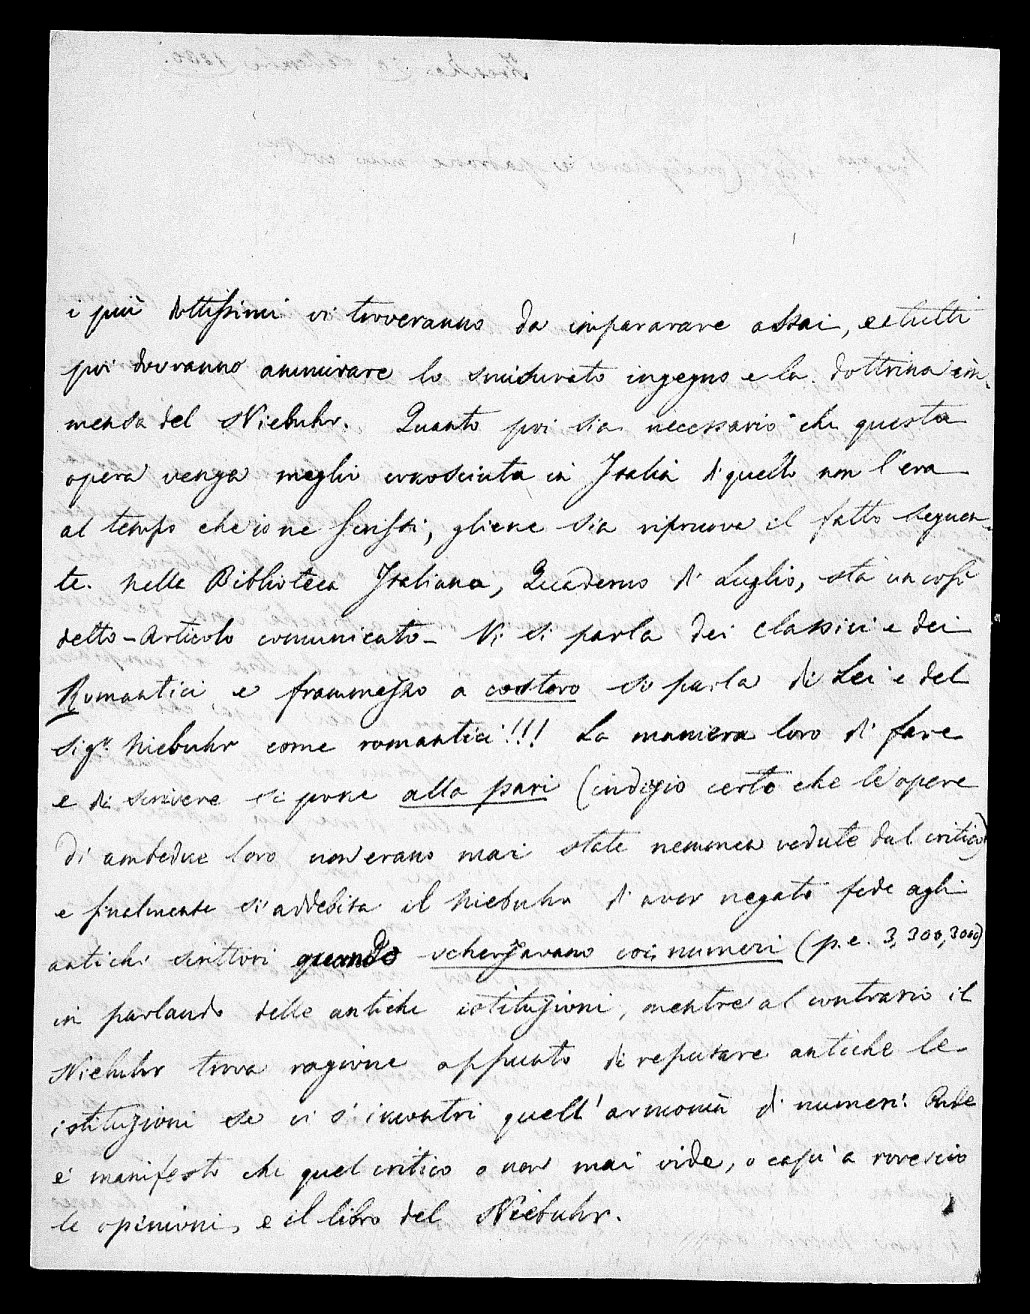 i più dottissimi vi troveranno da impararare assai, e tutti
poi dovranno ammirare lo smisurato ingegno e la dottrina im-
mensa del Niebuhr. Quanto poi sia necessario che questa
opera venga meglio conosciuta in Italia di quello non l'era
al tempo che io ne scrissi, gliene sia riprova il fatto seguen-
te. Nella Biblioteca Italiana, Quaderno di Luglio, sta un così
detto - Articolo comunicato - Vi si parla dei classici e dei
Romantici e frammezzo a costoro si parla di Lei e del
sigr. Niebuhr come romantici!!! La maniera loro di fare
e di scrivere si pone alla pari (indizio certo che le opere
di ambedue loro non erano mai state nemmen vedute dal critico)
e finalmente si addebita il Niebuhr di aver negato fede agli
antichi scrittori quando scherzavano coi numeri (p.e. 3, 300, 3000)
in parlando delle antiche istituzioni, mentre al contrario il
Niebuhr trova ragione appunto di reputare antiche le
istituzioni se vi s'incontri quell'armonia di numeri. Onde
e' manifesto che quel critico o non mai vide, o capì a rovescio
le opinioni, e il libro del Niebuhr.